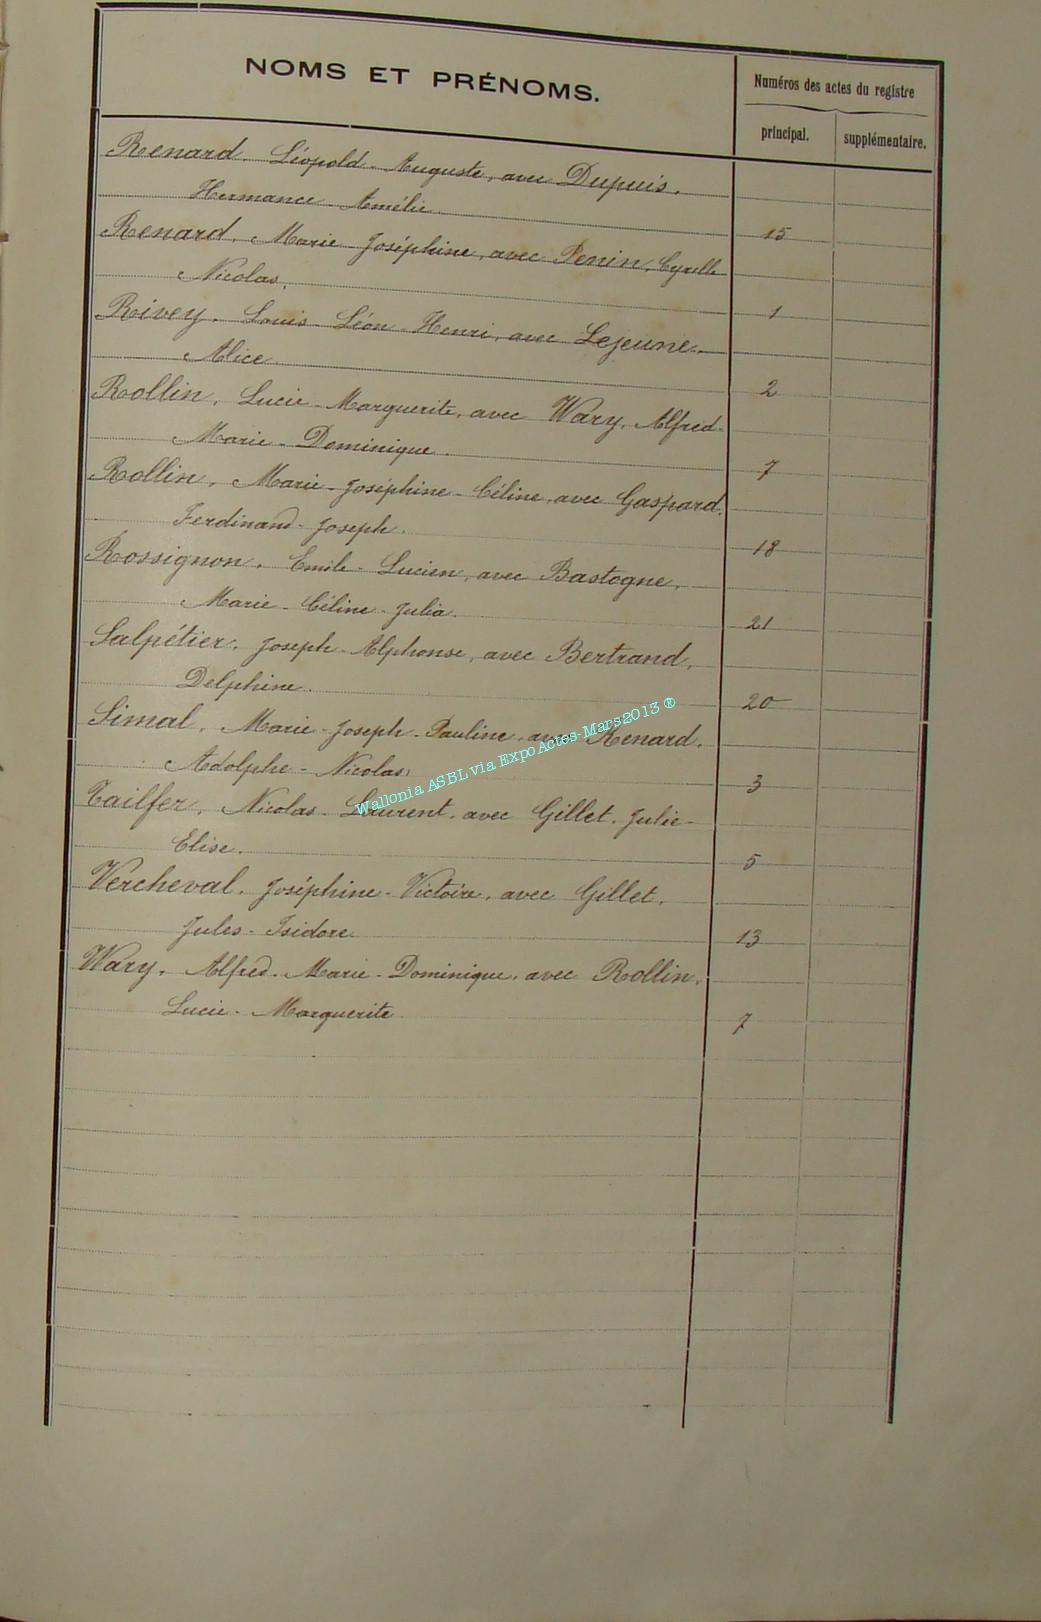 NOMS ET PRÉNOMS.
Numéros des actes du registre
principal. supplémentaire.
Renard. Léopold-Auguste, avec Dupuis.
Hermance-Amélie. 15
Renard. Marie-Joséphine, avec Penin, Cyrille
Nicolas. 1
Rivey. Louis-Léon-Henri, avec Lejeune.
Alice. 2
Rollin. Lucie-Marguerite, avec Wary. Alfred-
Marie-Dominique. 7
Rollin. Marie-Joséphine-Céline, avec Gaspard.
Ferdinand-Joseph. 18
Rossignon. Emile-Lucien, avec Bastogne.
Marie-Céline-Julia. 21
Salpétier. Joseph-Alphonse, avec Bertrand.
Delphine. 20
Simal. Marie-Joseph-Pauline, avec Renard.
Adolphe-Nicolas. 3
Tailfer. Nicolas-Laurent, avec Gillet. Julie-
Elise. 5
Vercheval. Joséphine-Victoire, avec Gillet.
Jules-Isidore 13
Wary. Alfred-Marie-Dominique, avec Rollin.
Lucie-Marguerite 7
Wallonia ASBL via Expo Actes-Mars2013 ®